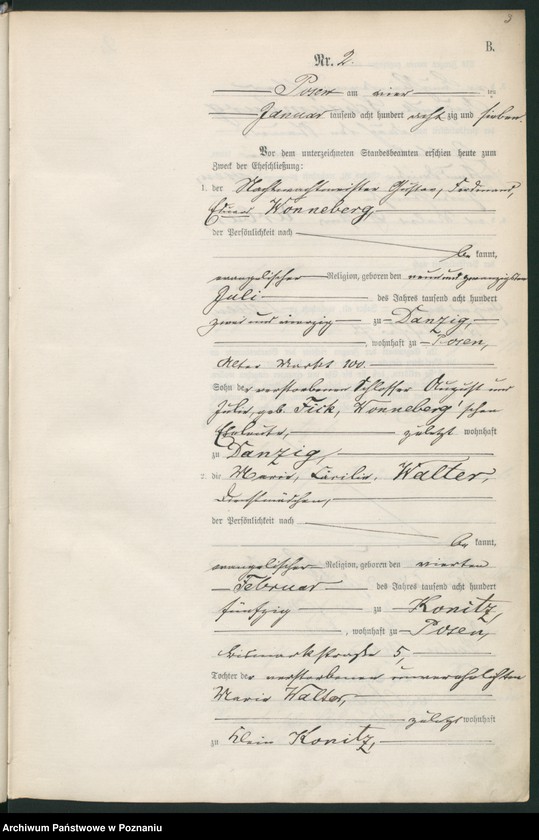 3
B.
Nr. 2.
Posen am vier ten
Januar tausend acht hundert acht zig und sieben.
Vor dem unterzeichneten Standesbeamten erschien heute zum
Zweck der Eheschließung:
1. der Nachtwachtmeister Gustav, Ferdinand,
Eduard Wonneberg,
der Persönlichkeit nach
be kannt,
evangelischer Religion, geboren den neunundzwanzigsten
Juli des Jahres tausend acht hundert
zwei und vierzig zu Danzig,
, wohnhaft zu Posen,
Alter Markt 100.
Sohn der verstorbenen Schlosser August und
Julie, geb. Fick, Wonneberg'schen
Eheleute, zuletzt wohnhaft
zu Danzig,
2. die Marie, Cäcilie, Walter,
Dienstmädchen,
der Persönlichkeit nach
be kannt,
evangelischer Religion, geboren den vierten
Februar des Jahres tausend acht hundert
fünfzig zu Konitz,
, wohnhaft zu Posen,
Bismarkstraße 5,
Tochter der verstorbenen unverehelichten
Marie Walter,
zuletzt wohnhaft
zu Klein Konitz,
Archiwum Państwowe w Poznaniu